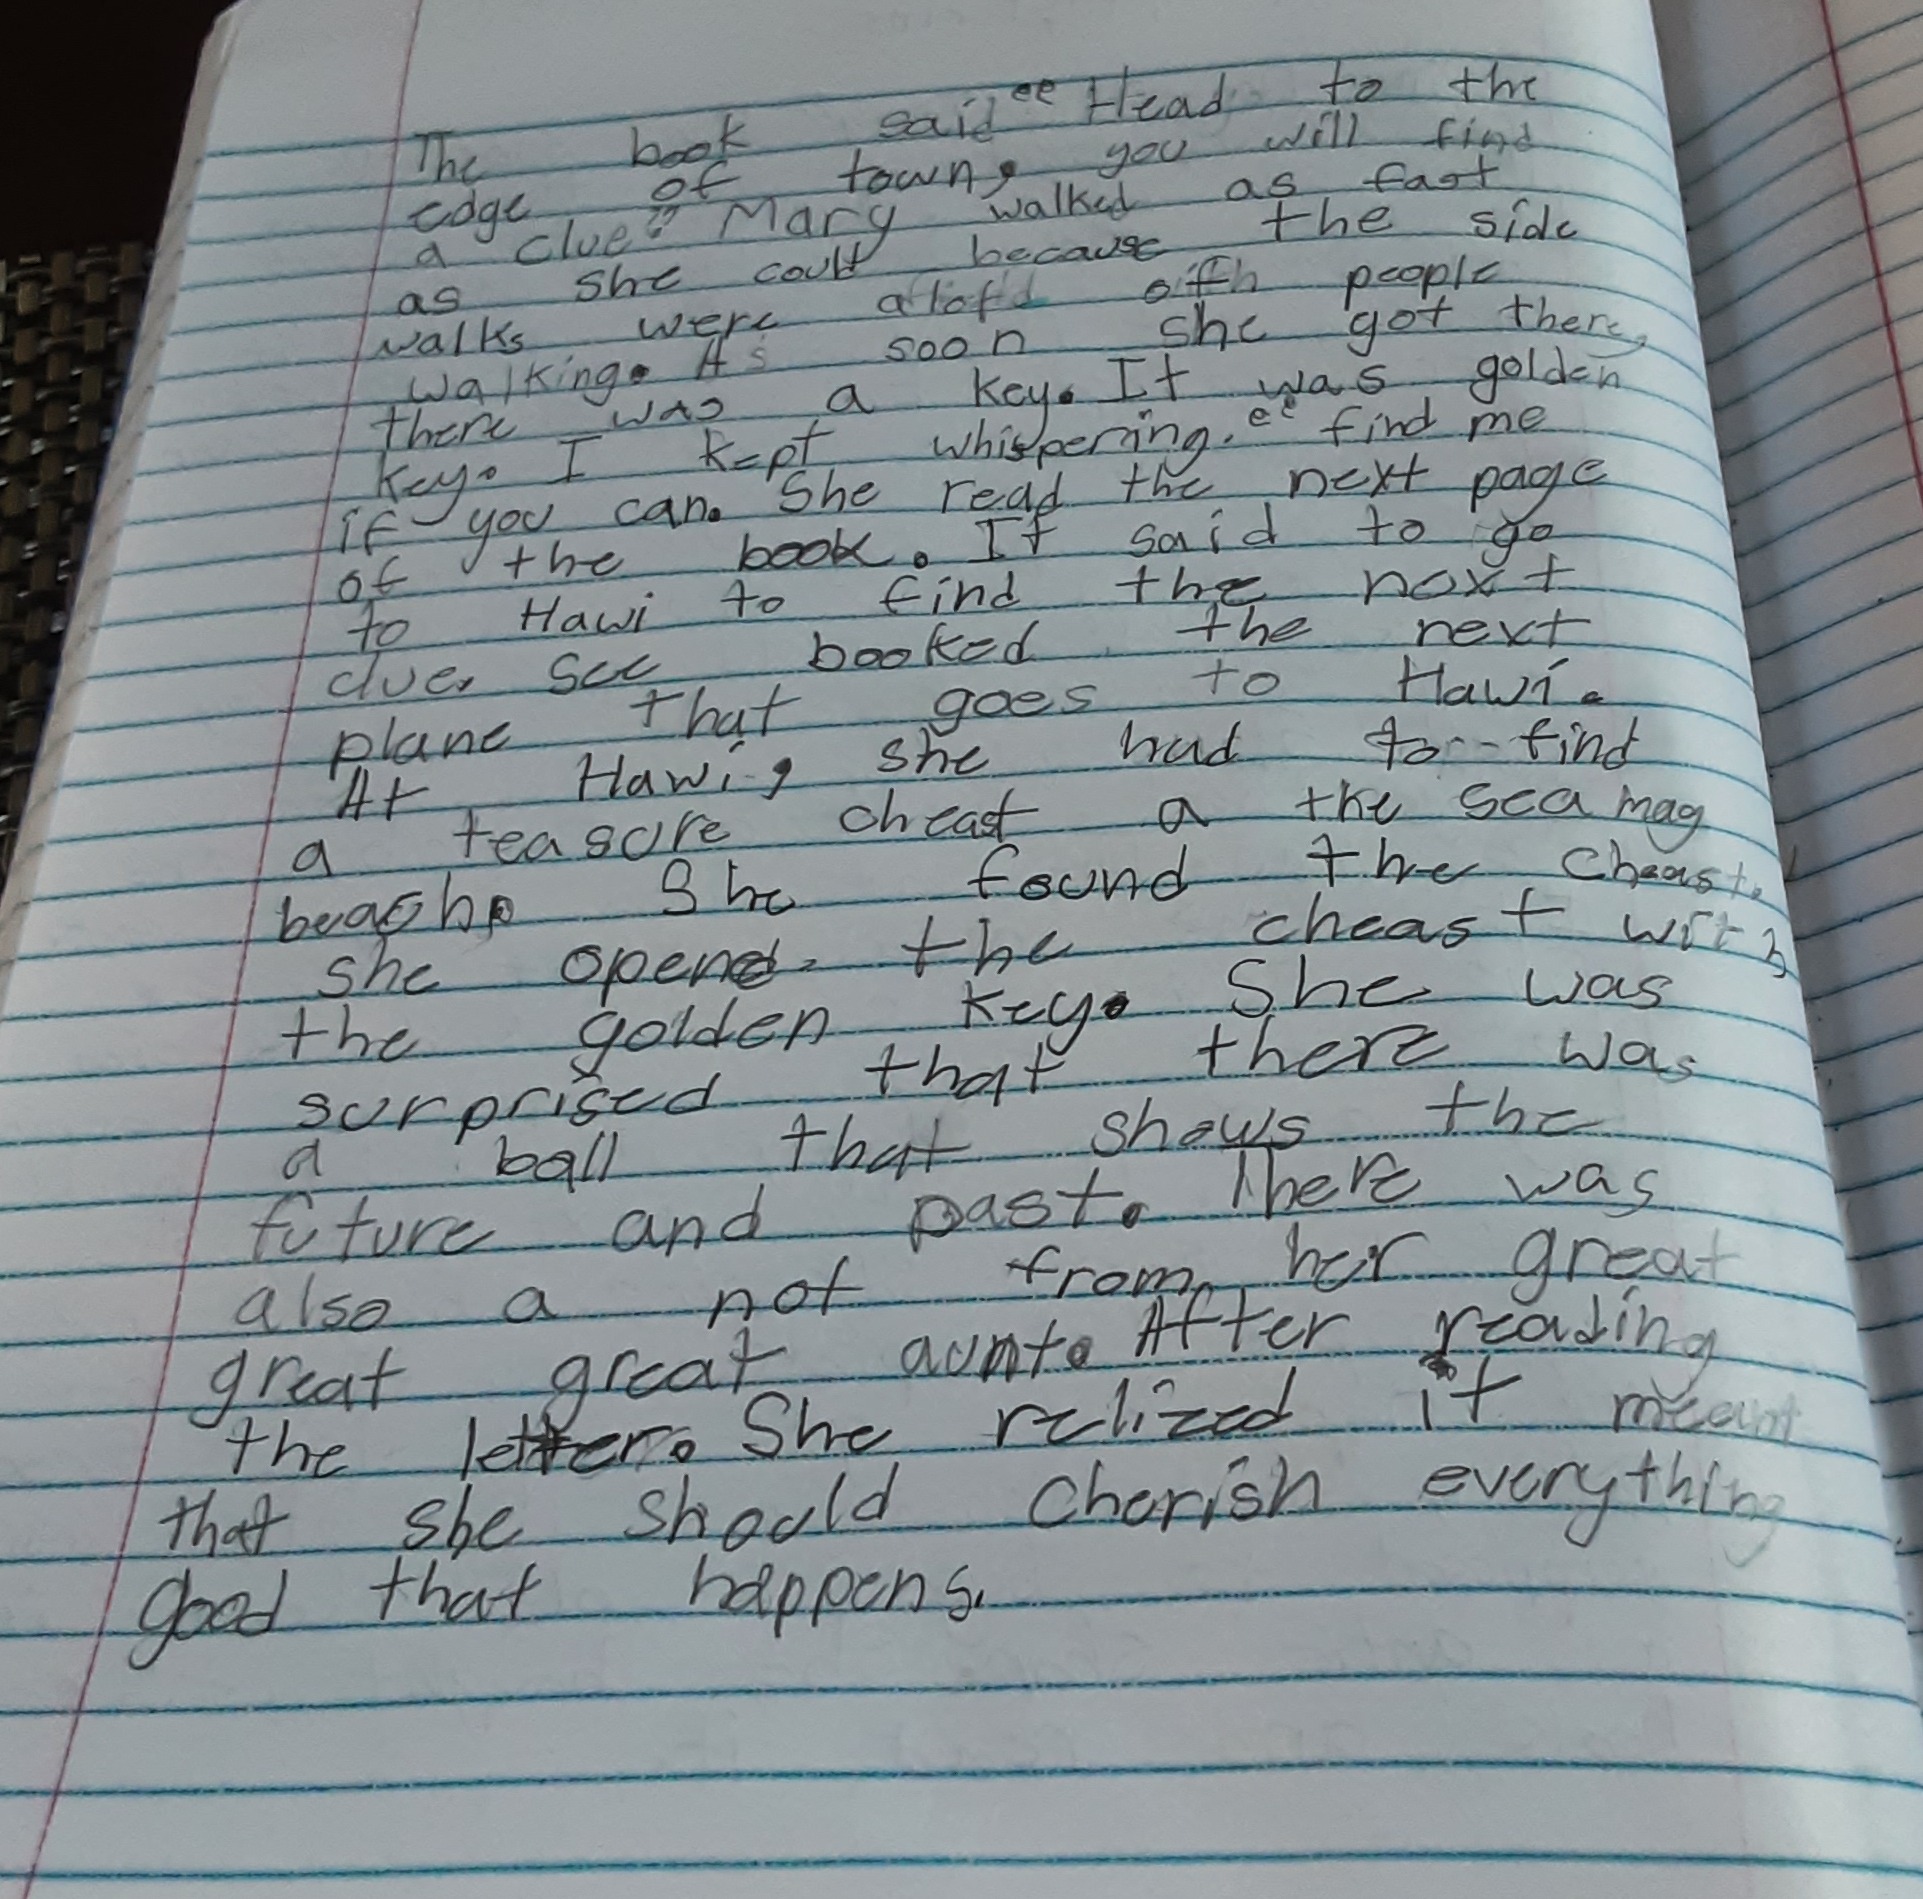 The book said "Head to the
edge of town, you will find
a clue." Mary walked as fast
as she could because the side
walks were alot of people
walking. As soon she got there,
there was a key. It was golden
key. I kept whispering. "find me
if you can. She read the next page
of the book. It said to go
to Hawi to find the next
clue. See booked the next
plane that goes to Hawi.
At Hawi, she had to find
a teasure cheast a the sea mag
beach. She found the cheast.
she opened the cheast with
the golden key. She was
surprised that there was
a ball that shows the
future and past. There was
also a not from her great
great great aunt. After reading
the letter. She relized it meant
that she should cherish everything
good that happens.